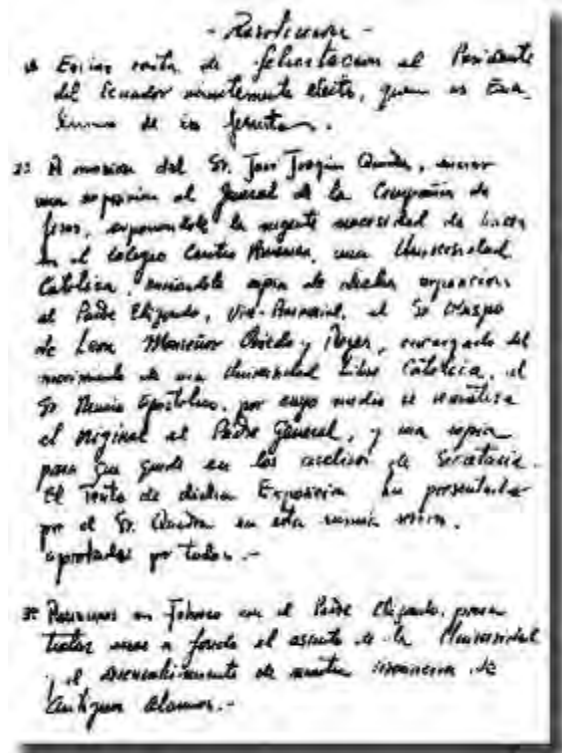 - Resolucion -
Enviar carta de felicitacion al Presidente
del Ecuador recientemente electo, quien es Exa
lumno de los Jesuitas.
2º A mocion del Sr. Jose Joaquin Quadra, enviar
una exposicion al General de la Compañia de
Jesus, exponiendole la urgente necesidad de hacer
en el Colegio Centro America, una Universidad
Catolica, enviandole copia de dicha exposicion
al Padre Elizondo, Vice-Provincial, al Sr Obispo
de Leon Monseñor Oviedo y Reyes, encargado del
movimiento de una Universidad Libre Catolica, al
Sr Nuncio Apostolico, por cuyo medio se remitira
el original al Padre General, y una copia
para que quede en los archivos de Secretaria.
El Texto de dicha Exposicion fue presentada
por el Sr. Quadra en esta misma sesion,
aprobada por todos.-
3º Reunirnos en Febrero con el Padre Elizondo, para
tratar mas a fondo el asunto de la Universidad
y el desenvolvimiento de nuestra Asociacion de
Antiguos Alumnos.-